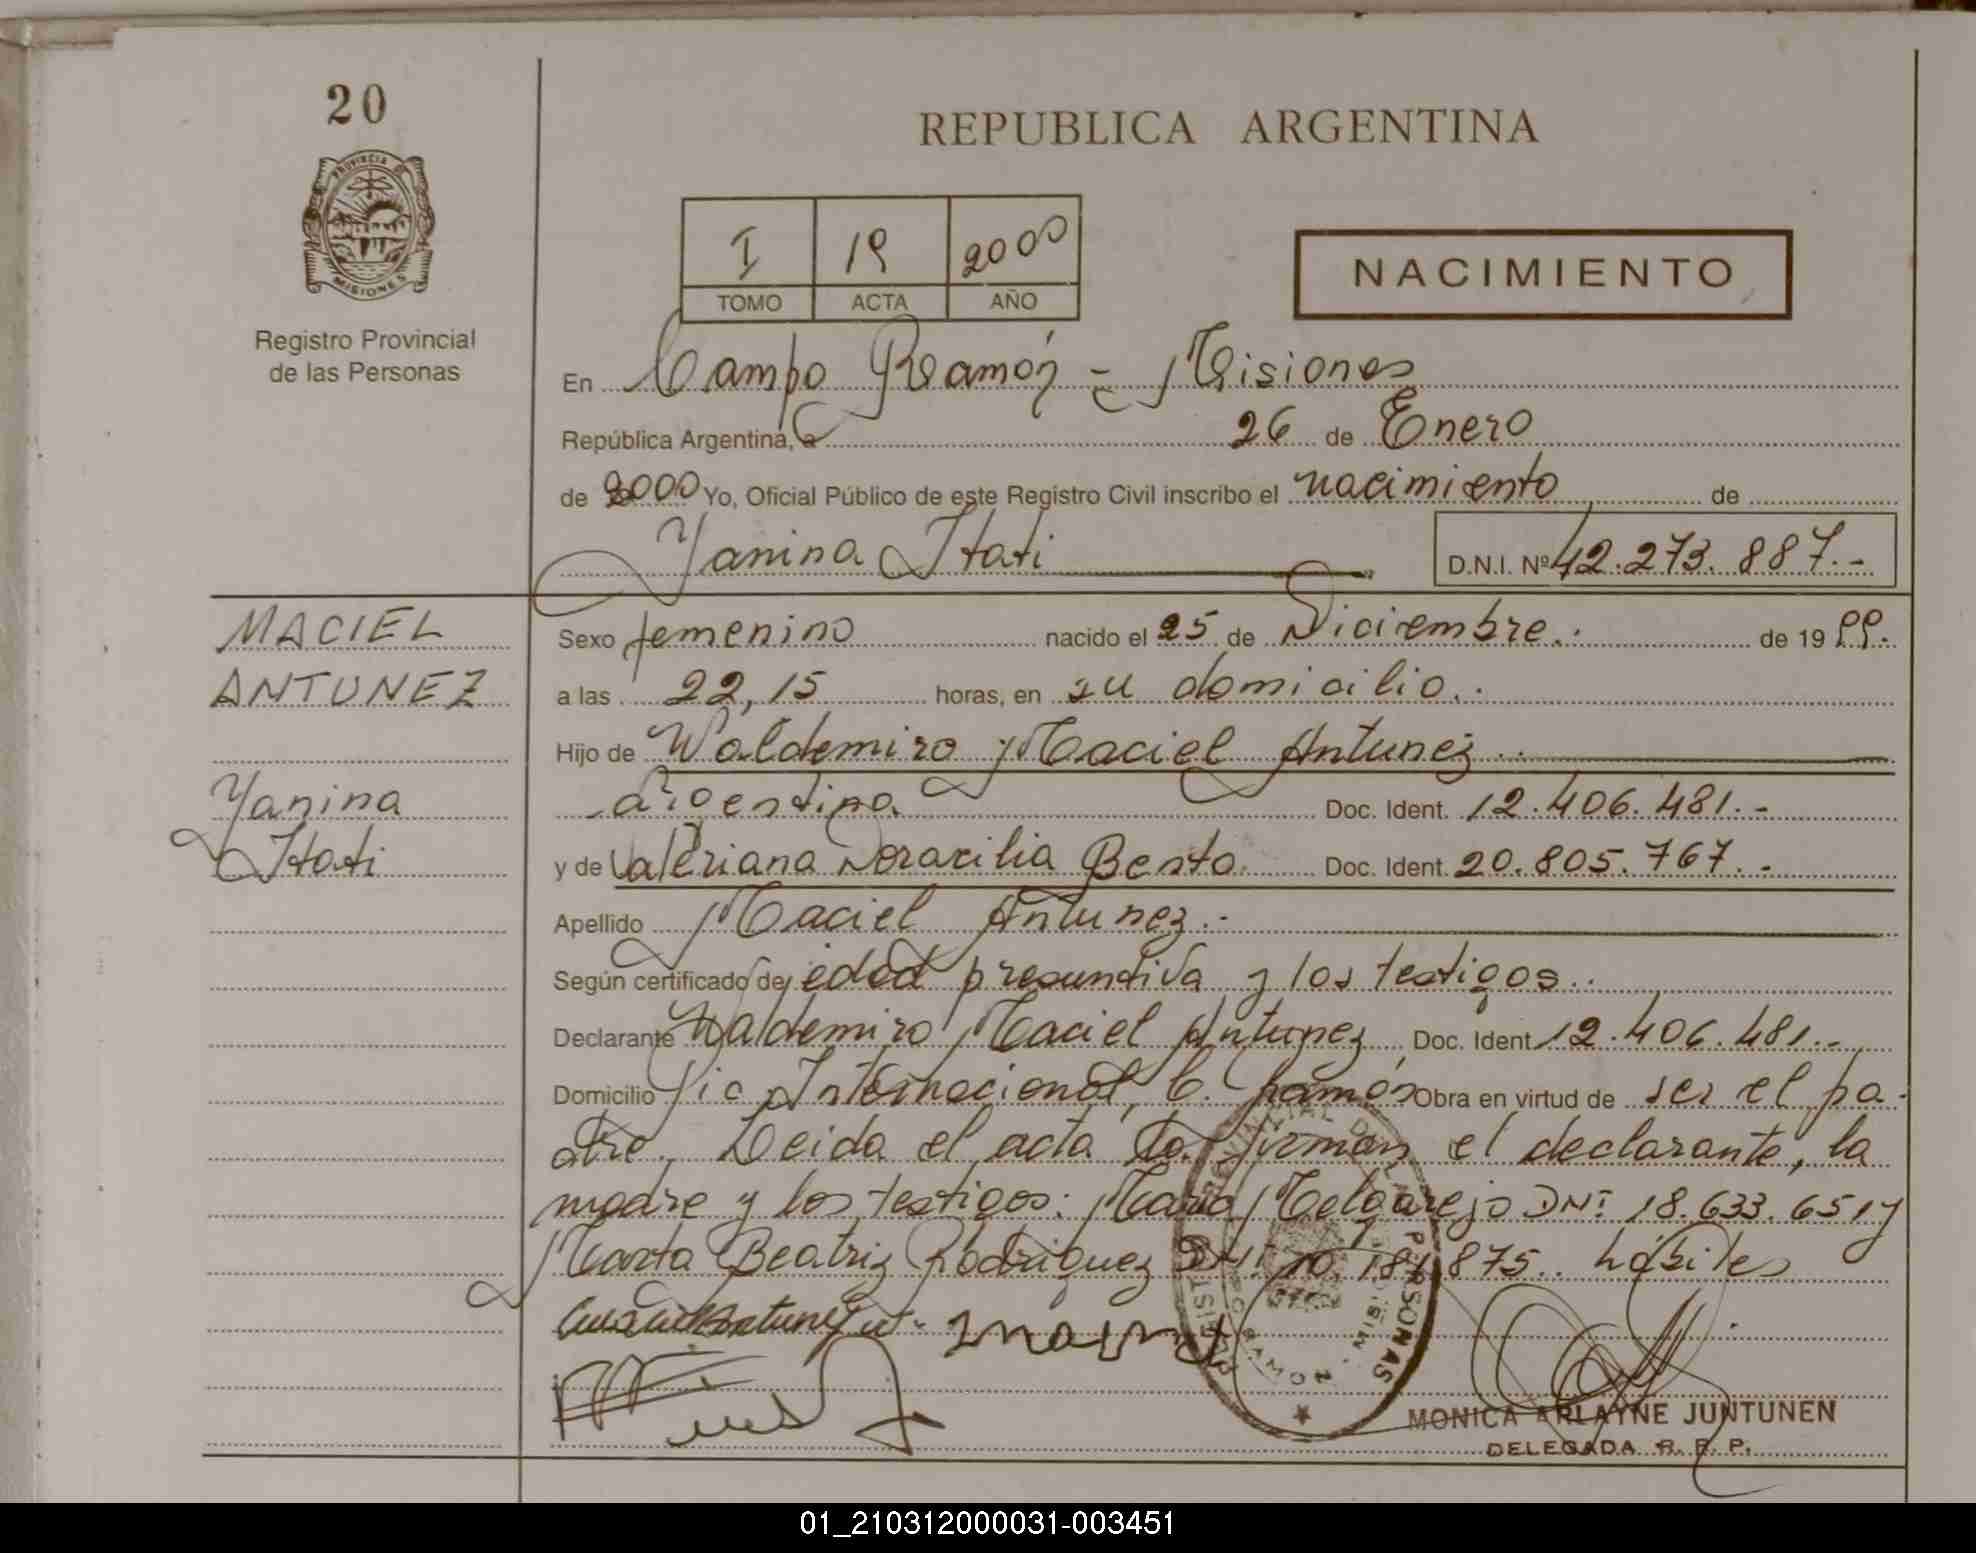 20
PROVINCIA DE
MISIONES
Registro Provincial
de las Personas
REPUBLICA ARGENTINA
I 19 2000
TOMO ACTA AÑO
NACIMIENTO
En Campo Ramón - Misiones
República Argentina, a 26 de Enero
de 2000 Yo, Oficial Público de este Registro Civil inscribo el nacimiento de
Yanina Itati D.N.I. Nº 42.273.887.-
MACIEL
ANTUNEZ
Yanina
Itati
Sexo femenino nacido el 25 de Diciembre.. de 19 99.
a las 22,15 horas, en su domicilio..
Hijo de Waldemiro Maciel Antunez..
argentino Doc. Ident. 12.406.481.-
y de Valeriana Doracilia Bento. Doc. Ident. 20.805.767.-
Apellido Maciel Antunez.-
Según certificado de edad presuntiva y los testigos..
Declarante Waldemiro Maciel Antunez Doc. Ident 12.406.481.-
Domicilio Pic. Internacional, C. Ramón Obra en virtud de ser el pa-
dre. Leida el acta la firman el declarante, la
madre y los testigos: Maria Melgarejo DNI 18.633.651 y
Marta Beatriz Rodriguez DNI 10.181.875.. hábiles
PERSONAS
MONICA ARLAYNE JUNTUNEN
DELEGADA R. P. P.
01_210312000031-003451